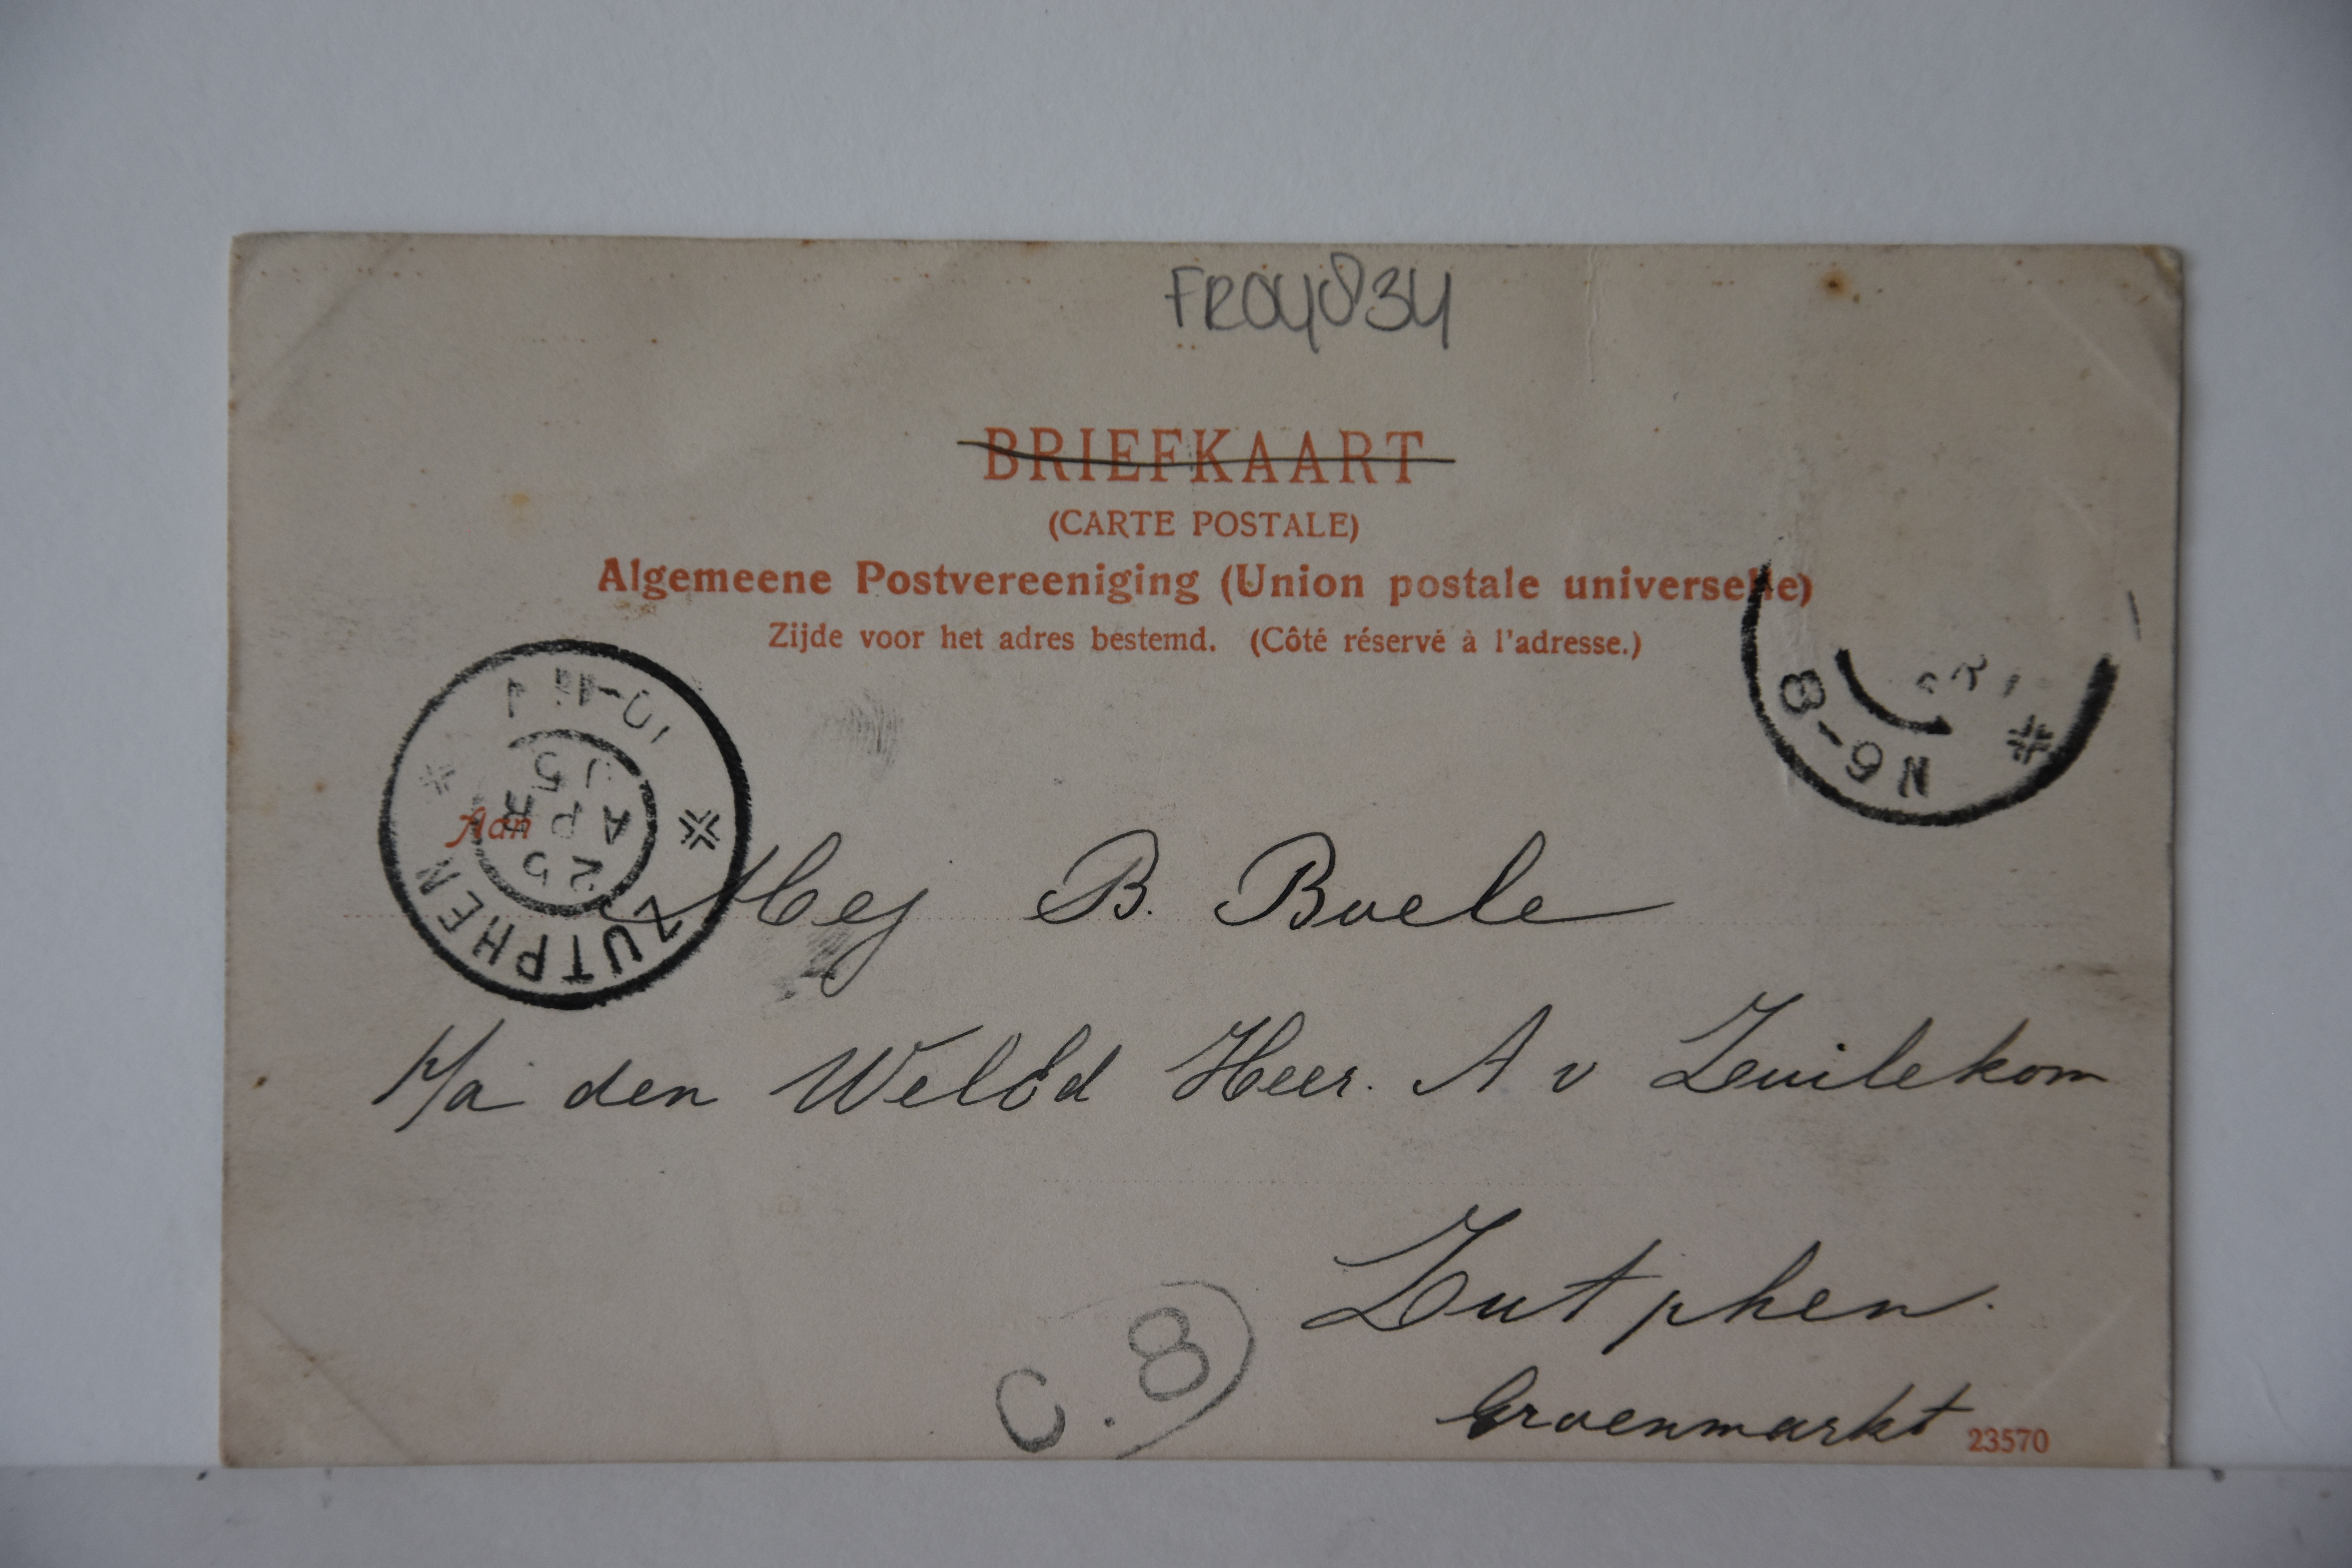 FR04834
BRIEFKAART
(CARTE POSTALE)
Algemeene Postvereeniging (Union postale universelle)
Zijde voor het adres bestemd. (Côté réservé à l'adresse.)
N 6-8
ZUTPHEN
25
APR
05
Aan
Mej B. Boele
p/a den WelEd Heer. A v Zuilekom
Zutphen.
Groenmarkt
C. 8
23570